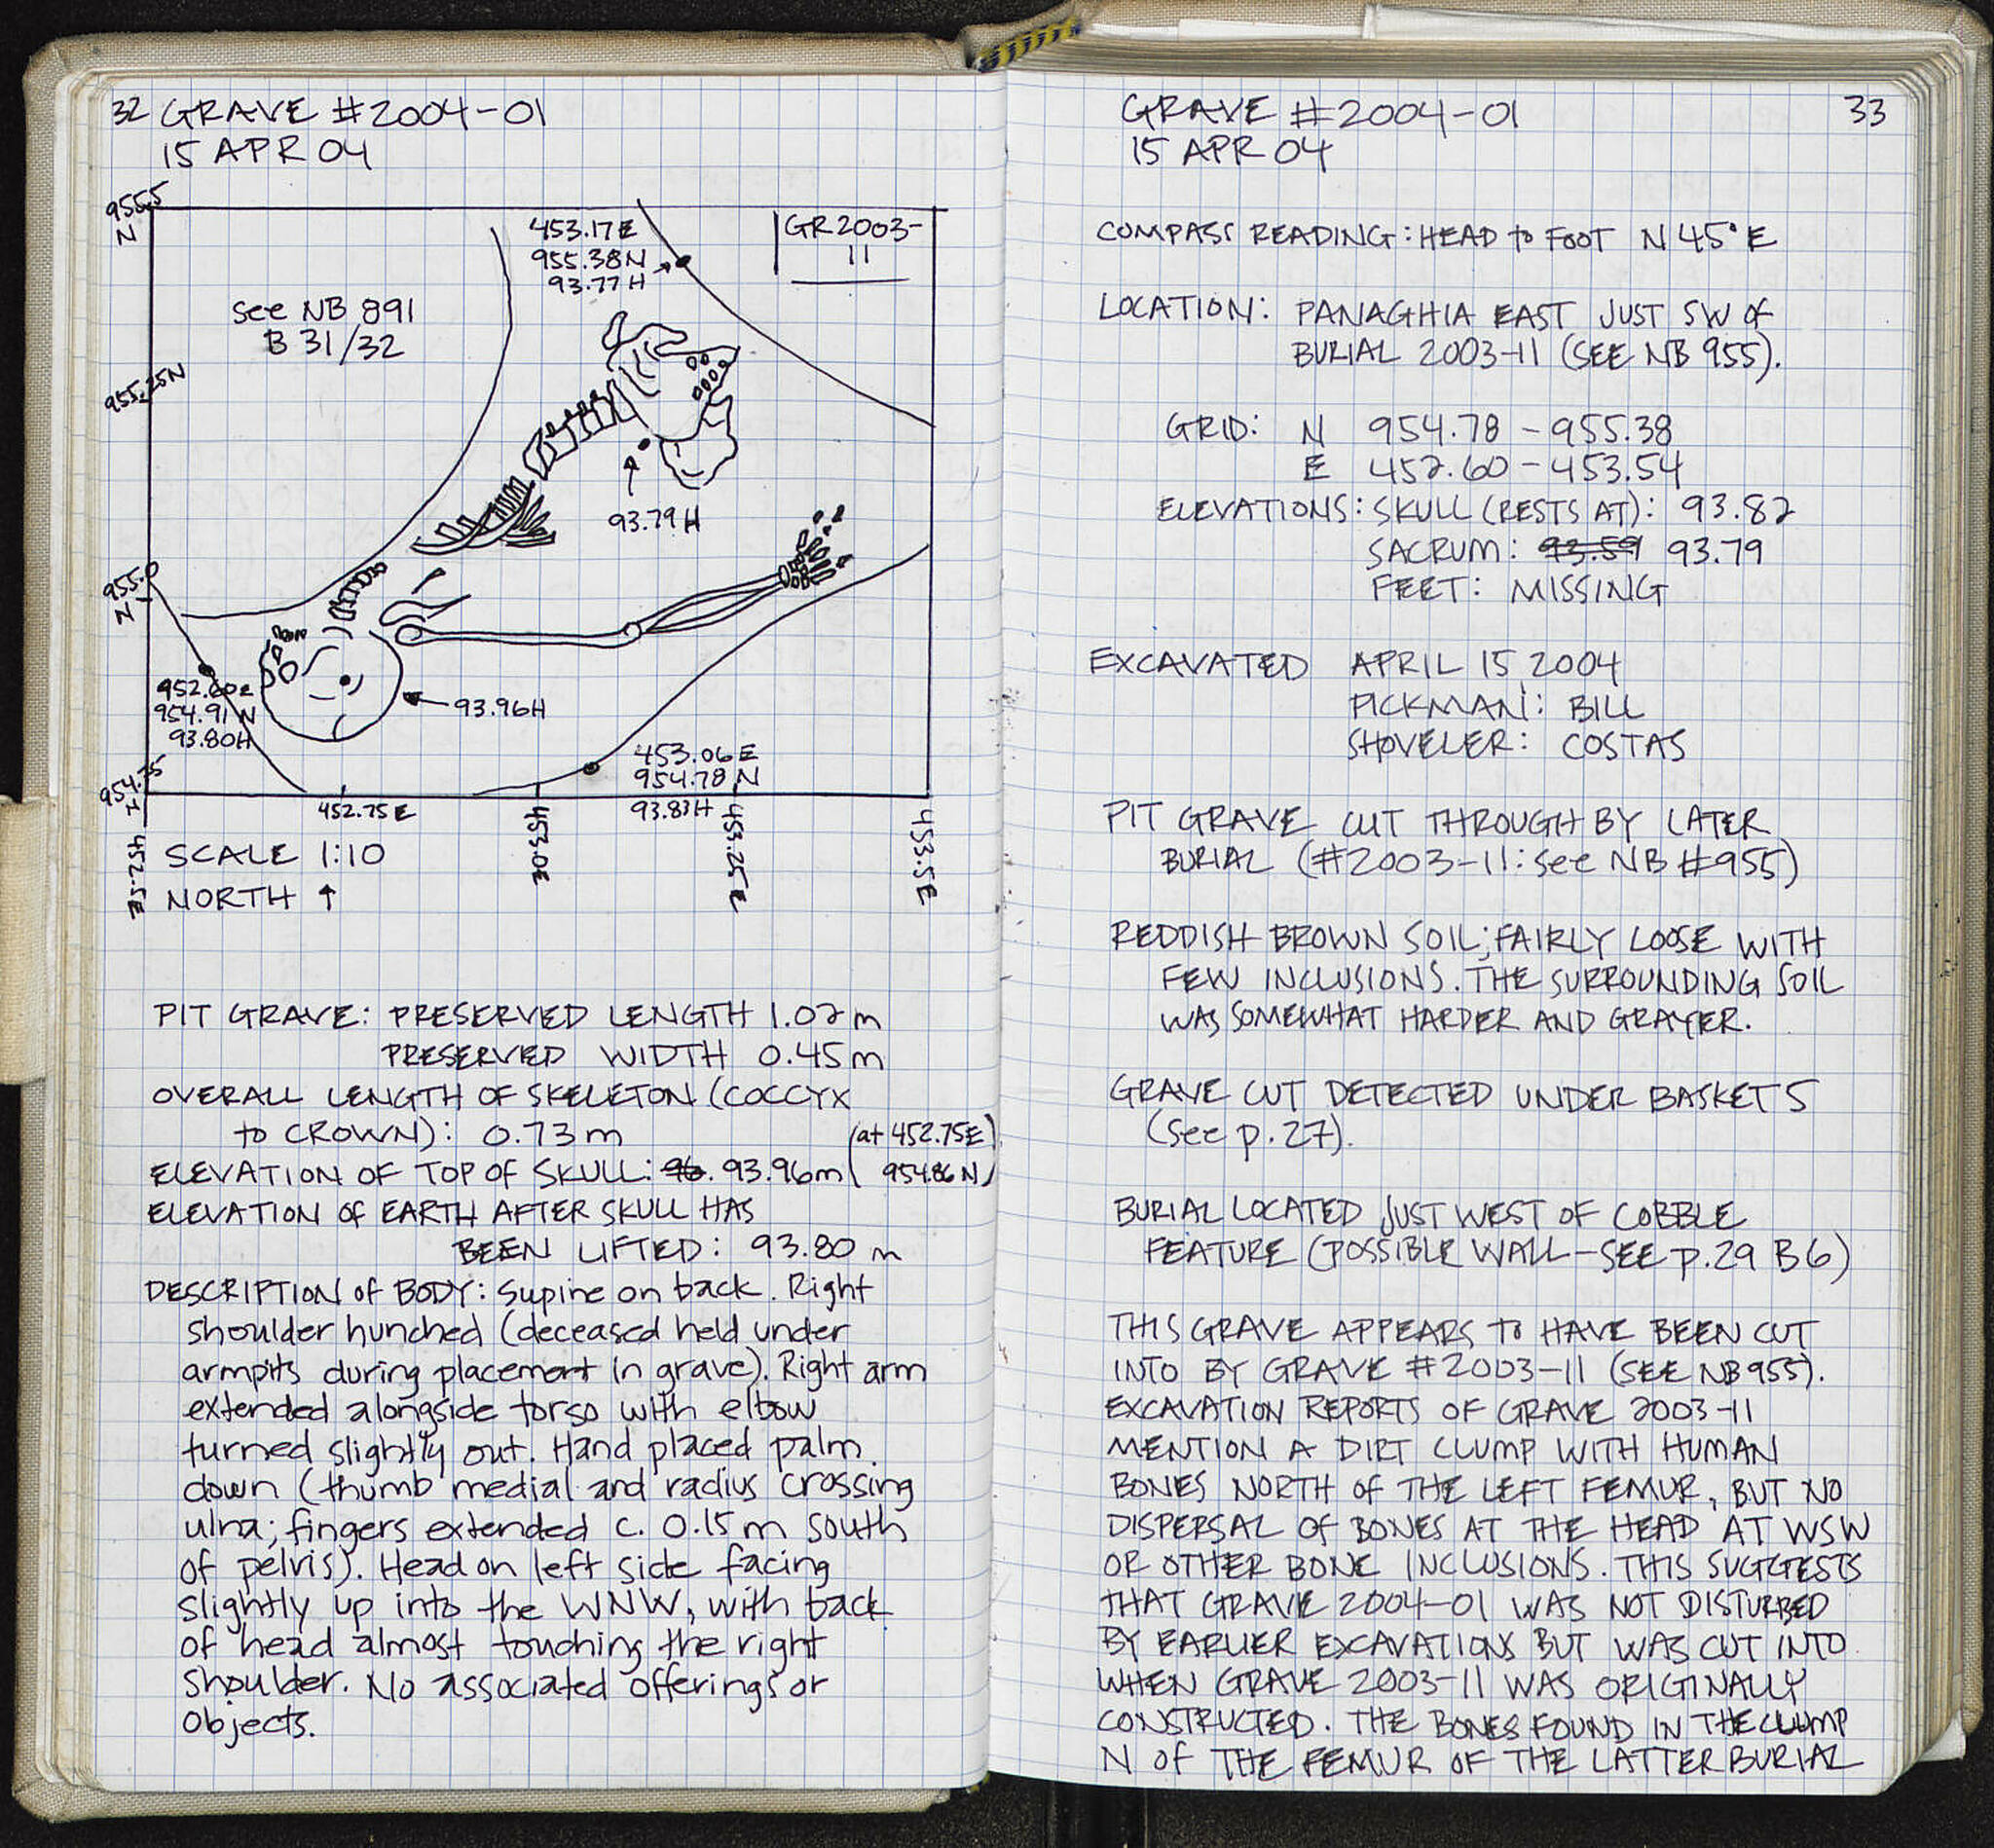 32 GRAVE #2004-01
15 APR 04
955.5
N
453.17 E
955.38 N
93.77 H
GR 2003-
11
see NB 891
B 31/32
955.25N
93.79 H
955.0
N
952.60E
954.91 N
93.80H
93.96H
453.06 E
954.78 N
93.83H
954.75
N
452.75 E
452.5E
453.0E
453.25E
453.5E
SCALE 1:10
NORTH ↑
PIT GRAVE: PRESERVED LENGTH 1.02 m
PRESERVED WIDTH 0.45 m
OVERALL LENGTH OF SKELETON (COCCYX
to CROWN): 0.73 m
(at 452.75E
954.86 N)
ELEVATION OF TOP OF SKULL: 96. 93.96m
ELEVATION OF EARTH AFTER SKULL HAS
BEEN LIFTED: 93.80 m
DESCRIPTION OF BODY: Supine on back. Right
shoulder hunched (deceased held under
armpits during placement in grave). Right arm
extended alongside torso with elbow
turned slightly out. Hand placed palm
down (thumb medial and radius crossing
ulna; fingers extended c. 0.15 m south
of pelvis). Head on left side facing
slightly up into the WNW, with back
of head almost touching the right
shoulder. No associated offerings or
objects.
GRAVE #2004-01 33
15 APR 04
COMPASS READING: HEAD to FOOT N 45° E
LOCATION: PANAGHIA EAST JUST SW of
BURIAL 2003-11 (SEE NB 955).
GRID: N 954.78 - 955.38
E 452.60 - 453.54
ELEVATIONS: SKULL (RESTS AT): 93.82
SACRUM: 93.59 93.79
FEET: MISSING
EXCAVATED APRIL 15, 2004
PICKMAN: BILL
SHOVELER: COSTAS
PIT GRAVE CUT THROUGH BY LATER
BURIAL (#2003-11: see NB #955)
REDDISH BROWN SOIL; FAIRLY LOOSE WITH
FEW INCLUSIONS. THE SURROUNDING SOIL
WAS SOMEWHAT HARDER AND GRAYER.
GRAVE CUT DETECTED UNDER BASKET 5
(see p. 27).
BURIAL LOCATED JUST WEST OF COBBLE
FEATURE (POSSIBLE WALL - SEE p. 29 B6)
THIS GRAVE APPEARS to HAVE BEEN CUT
INTO BY GRAVE #2003-11 (SEE NB 955).
EXCAVATION REPORTS OF GRAVE 2003-11
MENTION A DIRT CLUMP WITH HUMAN
BONES NORTH OF THE LEFT FEMUR, BUT NO
DISPERSAL OF BONES AT THE HEAD AT WSW
OR OTHER BONE INCLUSIONS. THIS SUGGESTS
THAT GRAVE 2004-01 WAS NOT DISTURBED
BY EARLIER EXCAVATIONS BUT WAS CUT INTO
WHEN GRAVE 2003-11 WAS ORIGINALLY
CONSTRUCTED. THE BONES FOUND IN THE CLUMP
N OF THE FEMUR OF THE LATTER BURIAL